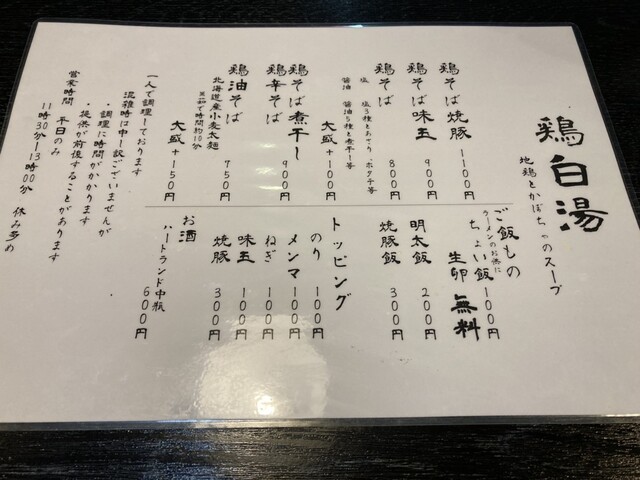 鶏白湯
地鶏とかぼちゃのスープ
鶏そば焼豚 1100円
鶏そば味玉 900円
鶏そば 800円
塩 塩3種とあさり、ホタテ等
醤油 醤油5種と煮干し等
大盛+100円
鶏そば煮干し 900円
鶏辛そば
鶏油そば 750円
北海道産小麦太麺
茹節で時間約10分
大盛+150円
一人で調理しております
混雑時は申し訳ございませんが
・調理に時間がかかります
・提供が前後することがあります
営業時間 平日のみ
11時30分~13時00分 休み多め
ご飯もの
ラーメンのお供に
ちょい飯 100円
生卵 無料
明太飯 200円
焼豚飯 300円
トッピング
のり 100円
メンマ 100円
ねぎ 100円
味玉 100円
焼豚 300円
お酒
ハートランド中瓶
600円